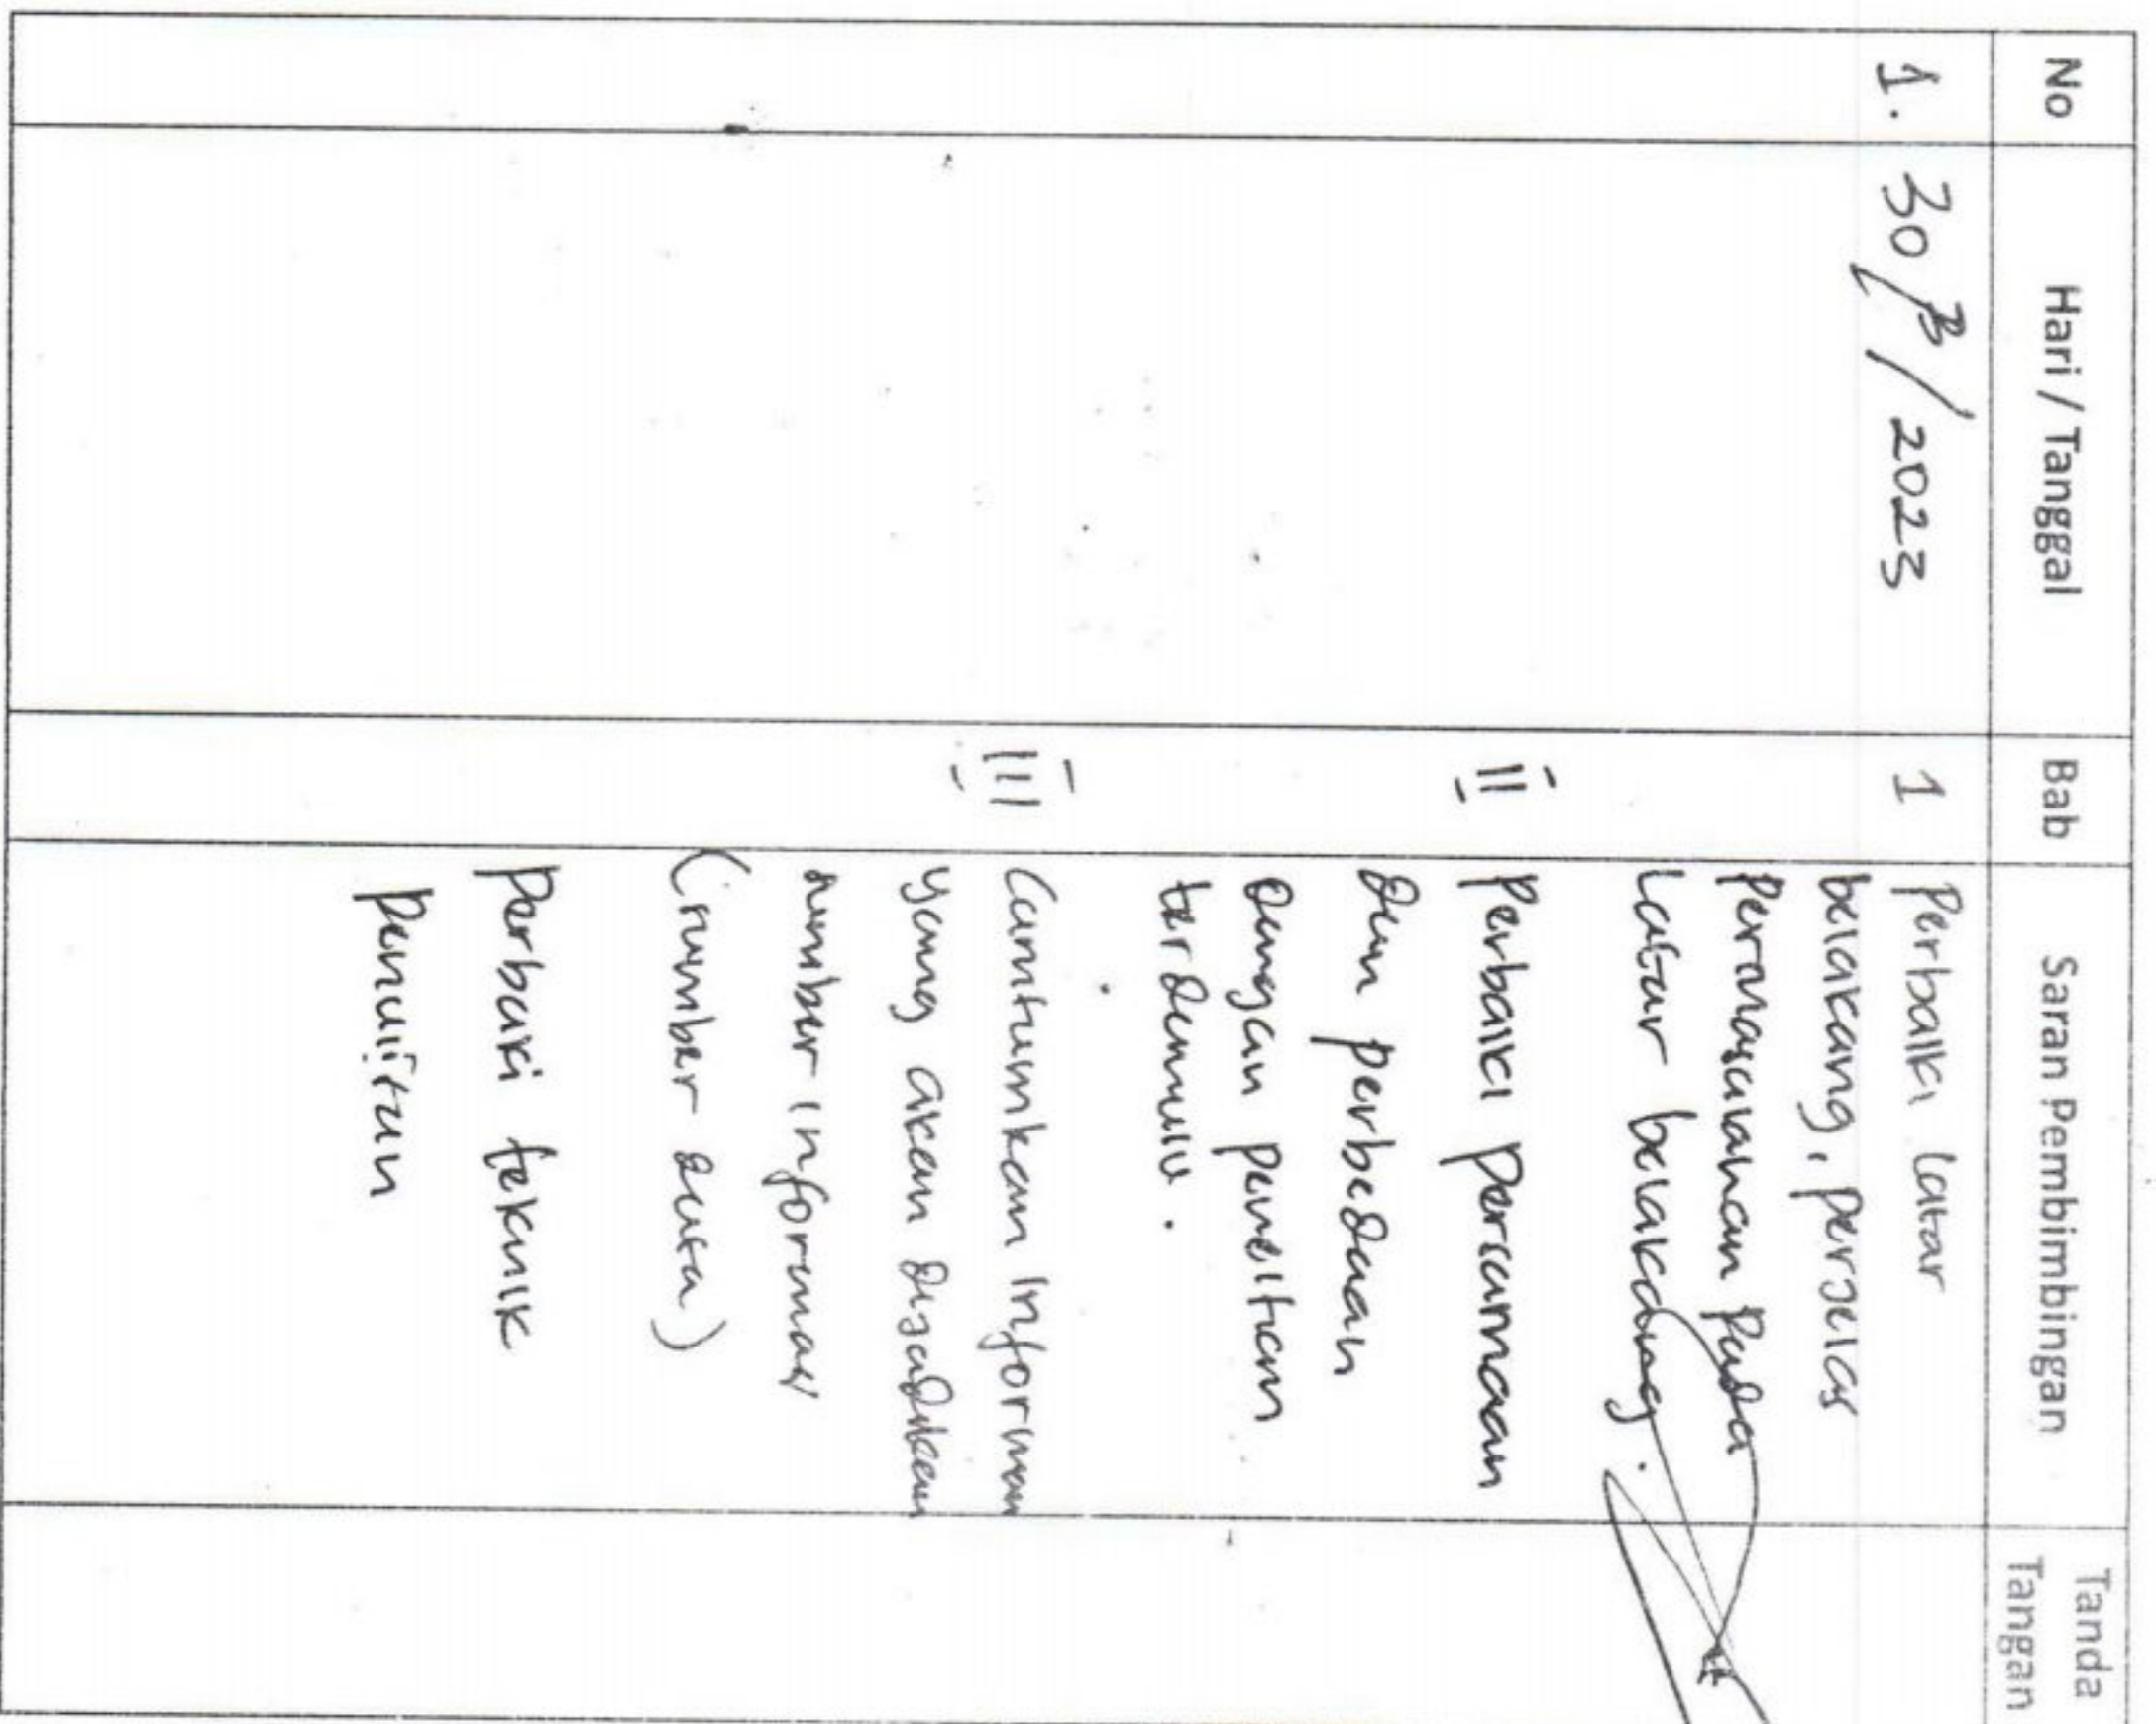 No Hari / Tanggal Bab Saran Pembimbingan Tanda Tangan
1. 30/3/2023 1 Perbaiki latar
belakang, perjelas
Permasalahan Pada
Latar belakang.
II Perbaiki persamaan
dan perbedaan
dengan penelitian
terdahulu.
III Cantumkan Informan
yang akan dijadikan
sumber informasi
(sumber data)
Perbaiki teknik
penulitan